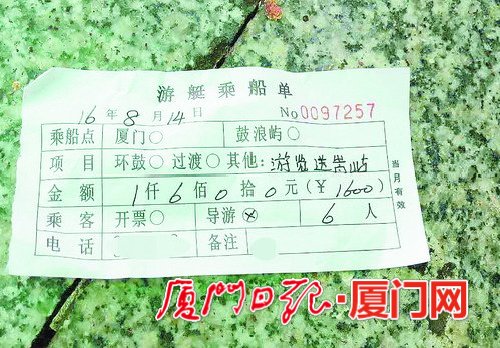 游艇乘船单
16年8月14日 No 0097257
乘船点 厦门○ 鼓浪屿○
项目 环鼓○ 过渡○ 其他:游览送鼓屿
金额 1仟6佰0拾0元(¥1600)
乘客 开票○ 导游⊗ 6人
电话 备注
当月有效
厦门日报·厦门网